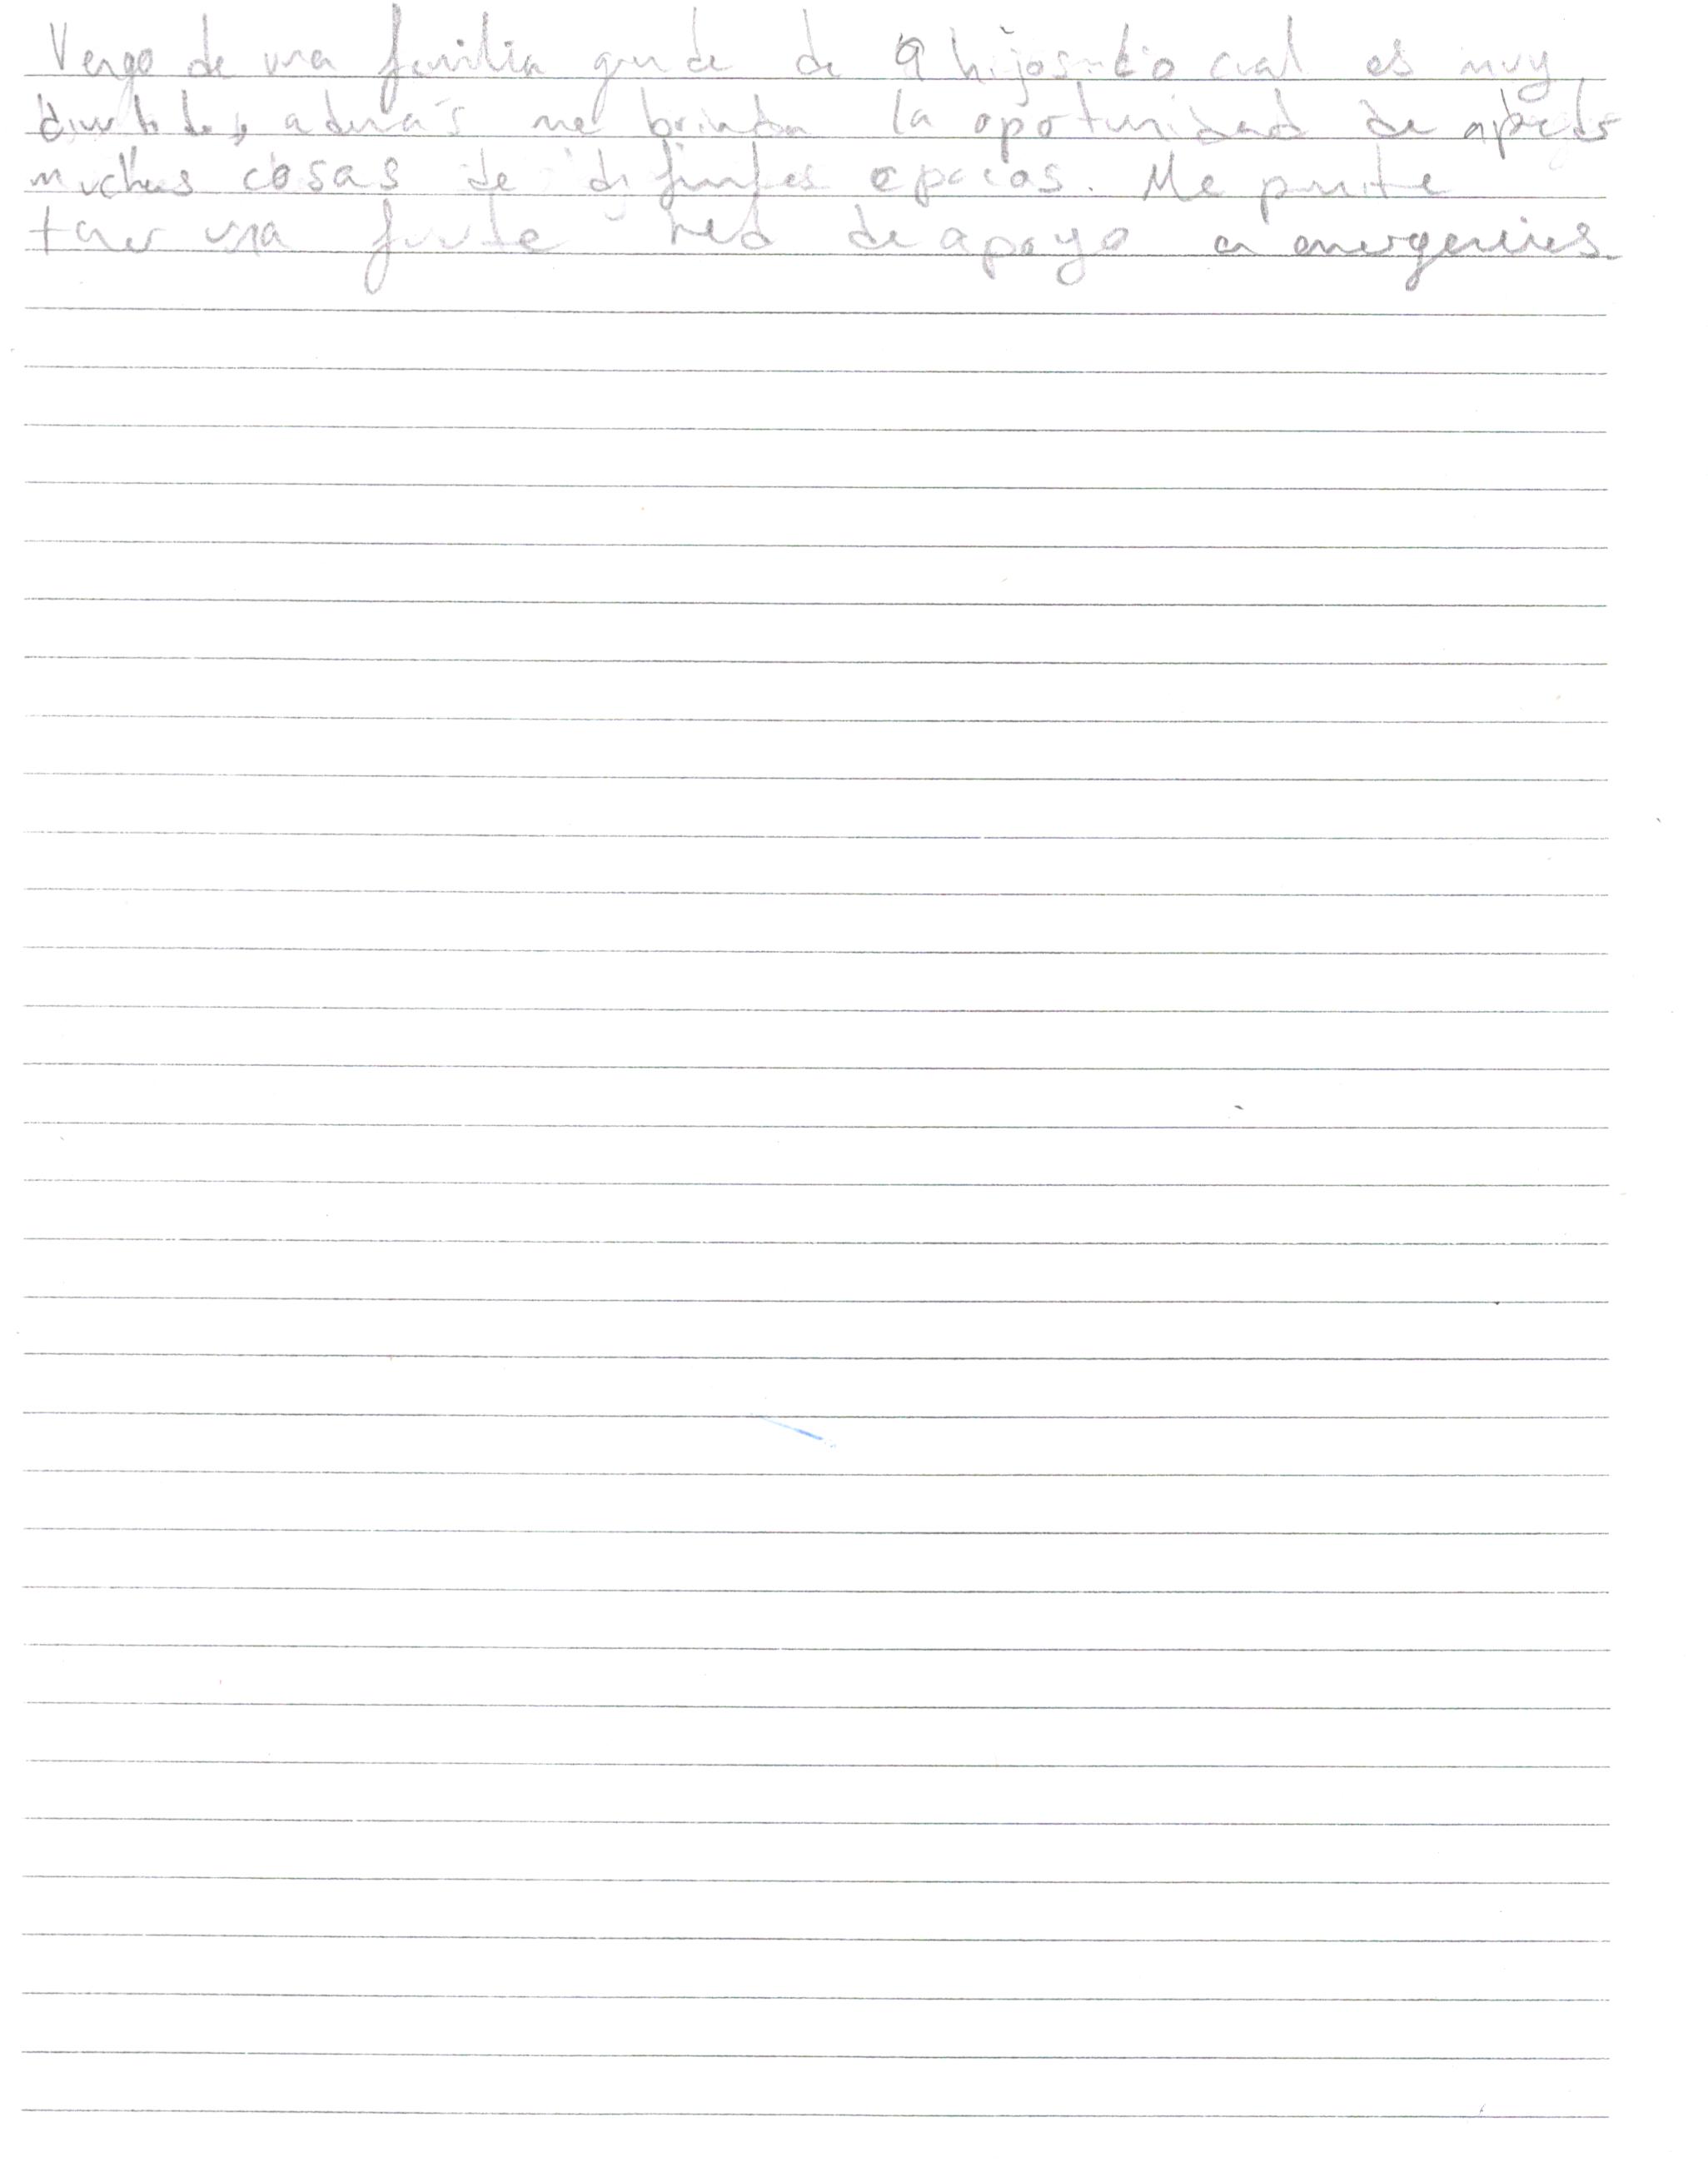 Vengo de una familia grande de 9 hijos lo cual es muy
divertido, además me brinda la oportunidad de aprender
muchas cosas de diferentes epocas. Me permite
tener una fuerte red de apoyo en emergencias.